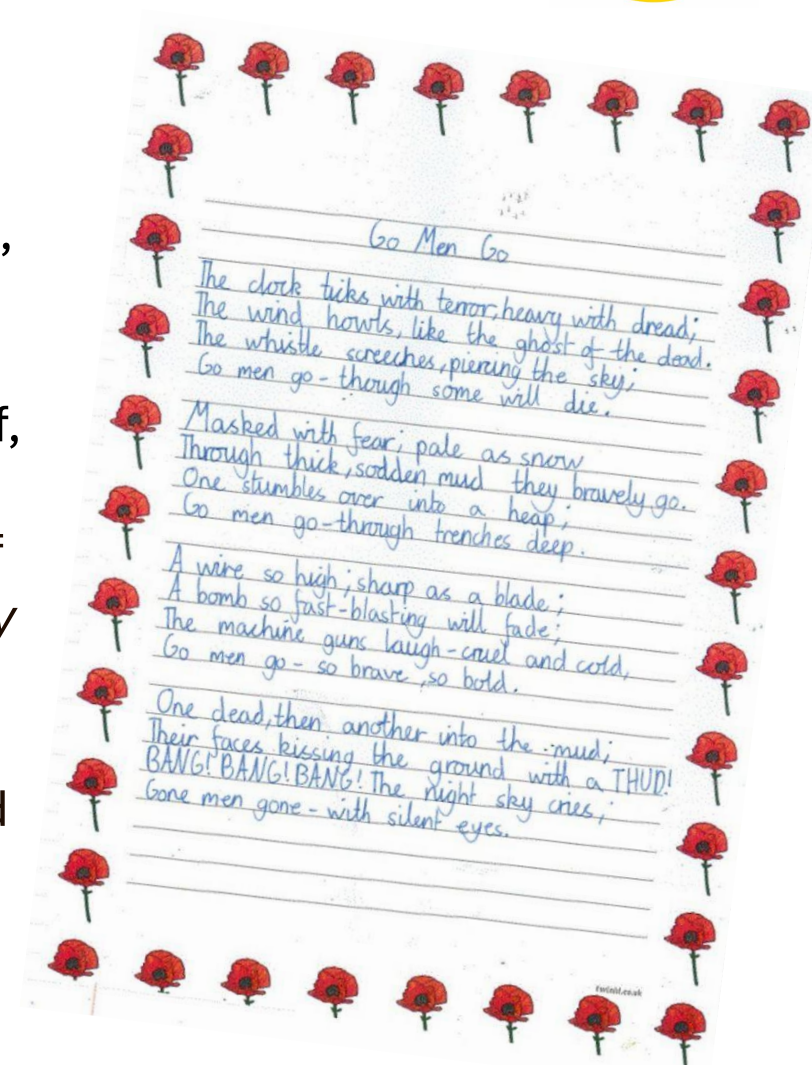 Go Men Go
The clock ticks with terror, heavy with dread;
The wind howls, like the ghost of the dead.
The whistle screeches, piercing the sky;
Go men go - though some will die.
Masked with fear; pale as snow
Through thick, sodden mud they bravely go.
One stumbles over into a heap;
Go men go - through trenches deep.
A wire so high; sharp as a blade;
A bomb so fast - blasting will fade;
The machine guns laugh - cruel and cold,
Go men go - so brave, so bold.
One dead, then another into the mud;
Their faces kissing the ground with a THUD!
BANG! BANG! BANG! The night sky cries;
Gone men gone - with silent eyes.
twinkl.co.uk